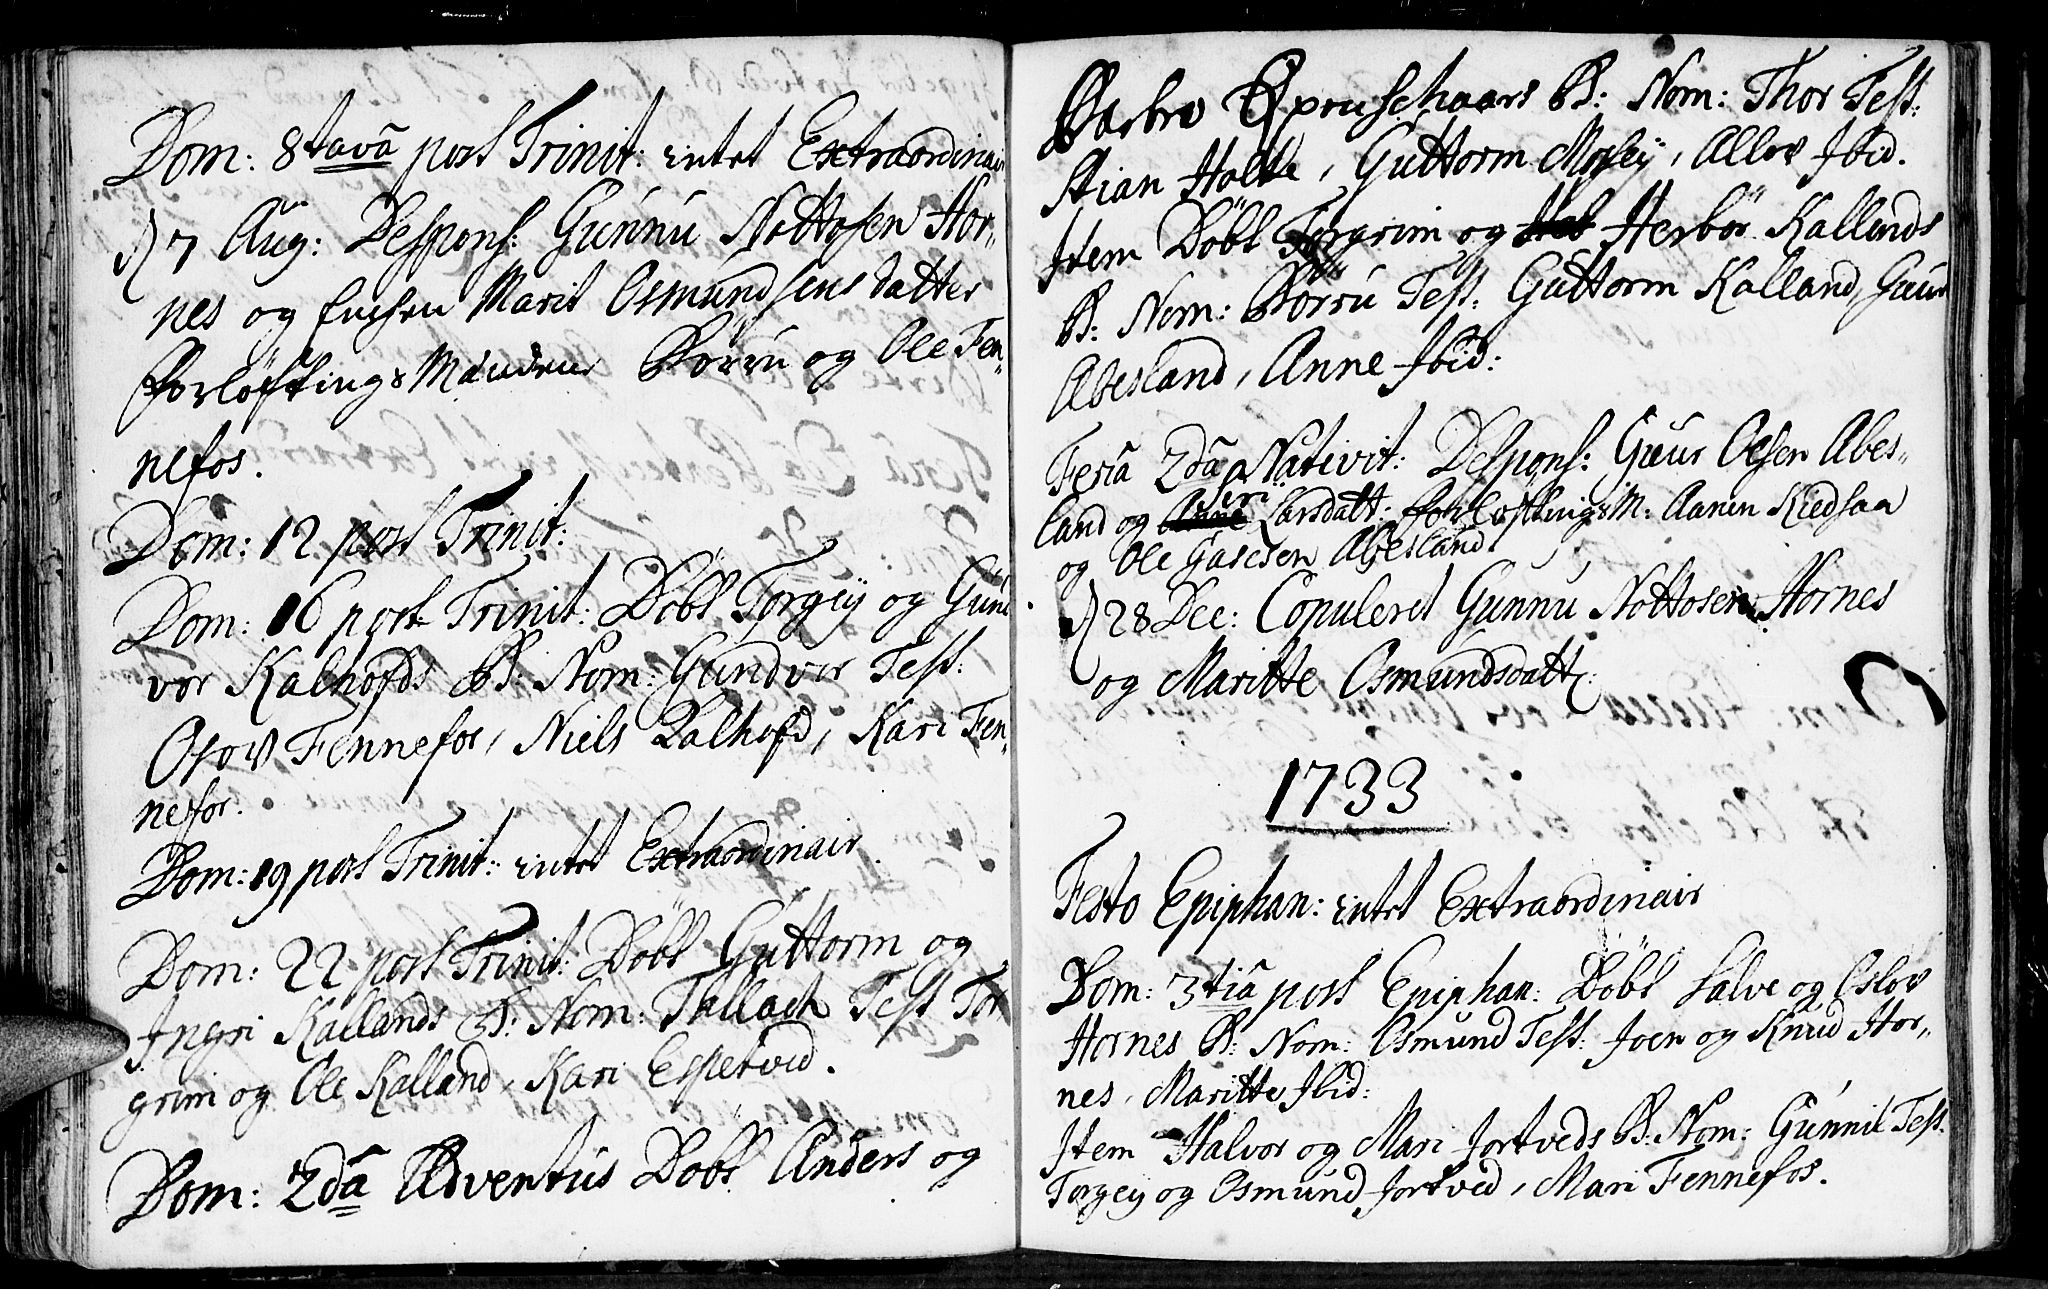 Dom: 8tavâ post Trinit: intet Extraordinair
D 7 Aug: Despons: Gunnu Nottosen Hor„
nes og Enchen Marit Osmundsens datter
ForlöftingsMænden Borru og Ole Fen„
nefos.
Dom: 12 post Trinit:
Dom: 16 post Trinit: Döbt Torgeÿ og Gund
vor Kalhofds B: Nom: Gundvor Test:
Osow Fennefos, Niels Kalhofd, Kari Fen„
nefos.
Dom: 19 post Trinit: intet Extraordinair.
Dom: 22 post Trinit: Döbt Guttorm og
Ingri Kallands B: Nom: Tallach Test Tor
grim og Ole Kalland, Kari Espetved.
Dom: 2dâ Adventus Döbt Anders og
Barbro B: Nom: Thor Test:
Stian Holte, Guttorm Moseÿ, Allov Ibid.
Item Döbt Torgrim og Herbör Kallands
B: Nom: Borru Test: Guttorm Kalland, Guur
Abesland, Anne Ibid:
Feria 2dâ Nativit: Despons: Guur Olsen Abes„
land og Siri Larsdatt: ForlöftingsM: Aanen Kiedsaa
og Ole Abesland.
D 28 Dec: Copuleret Gunnu Nottosen Hornes
og Maritte Osmundsdatt:
1733
Festo Epiphan: intet Extraordinair
Dom: 3tiâ post Epiphan: Döbt Salve og Oslov
Hornes B: Nom: Osmund Test: Joen og Knud Hor„
nes, Maritte Ibid:
Item Halvor og Mari Jortveds B: Nom: Gunnil Test:
Torgeÿ og Osmund Jortved, Mari Fennefos.